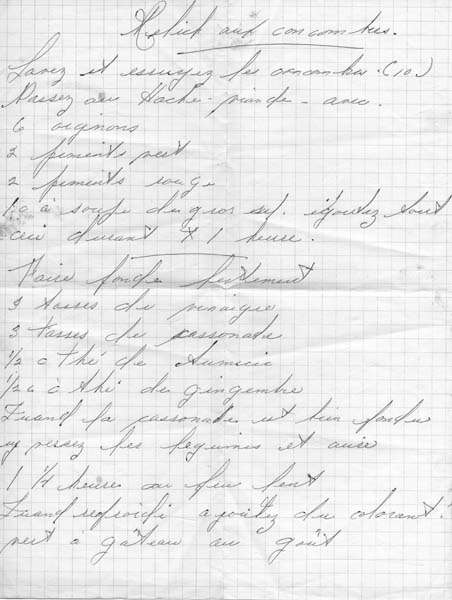 Relich aux concombres.
Lavez et essuyez les concombres (10)
Passez au Hache-viande - avec.
6 oignons
2 piments vert
2 piments rouge
1 c à soupe de gros sel. égoutez tout
ceci durant 1 heure.
Faire fondre lentement
3 tasses de vinaigre
3 tasses de cassonade
1/2 c thé de
1/2 c à thé de gingembre
Quand la cassonade est bien fondue
y versez les légumes et cuire
1 1/4 heure au feu lent
Quand refroidi ajoutez du colorant
vert à gâteau au goût